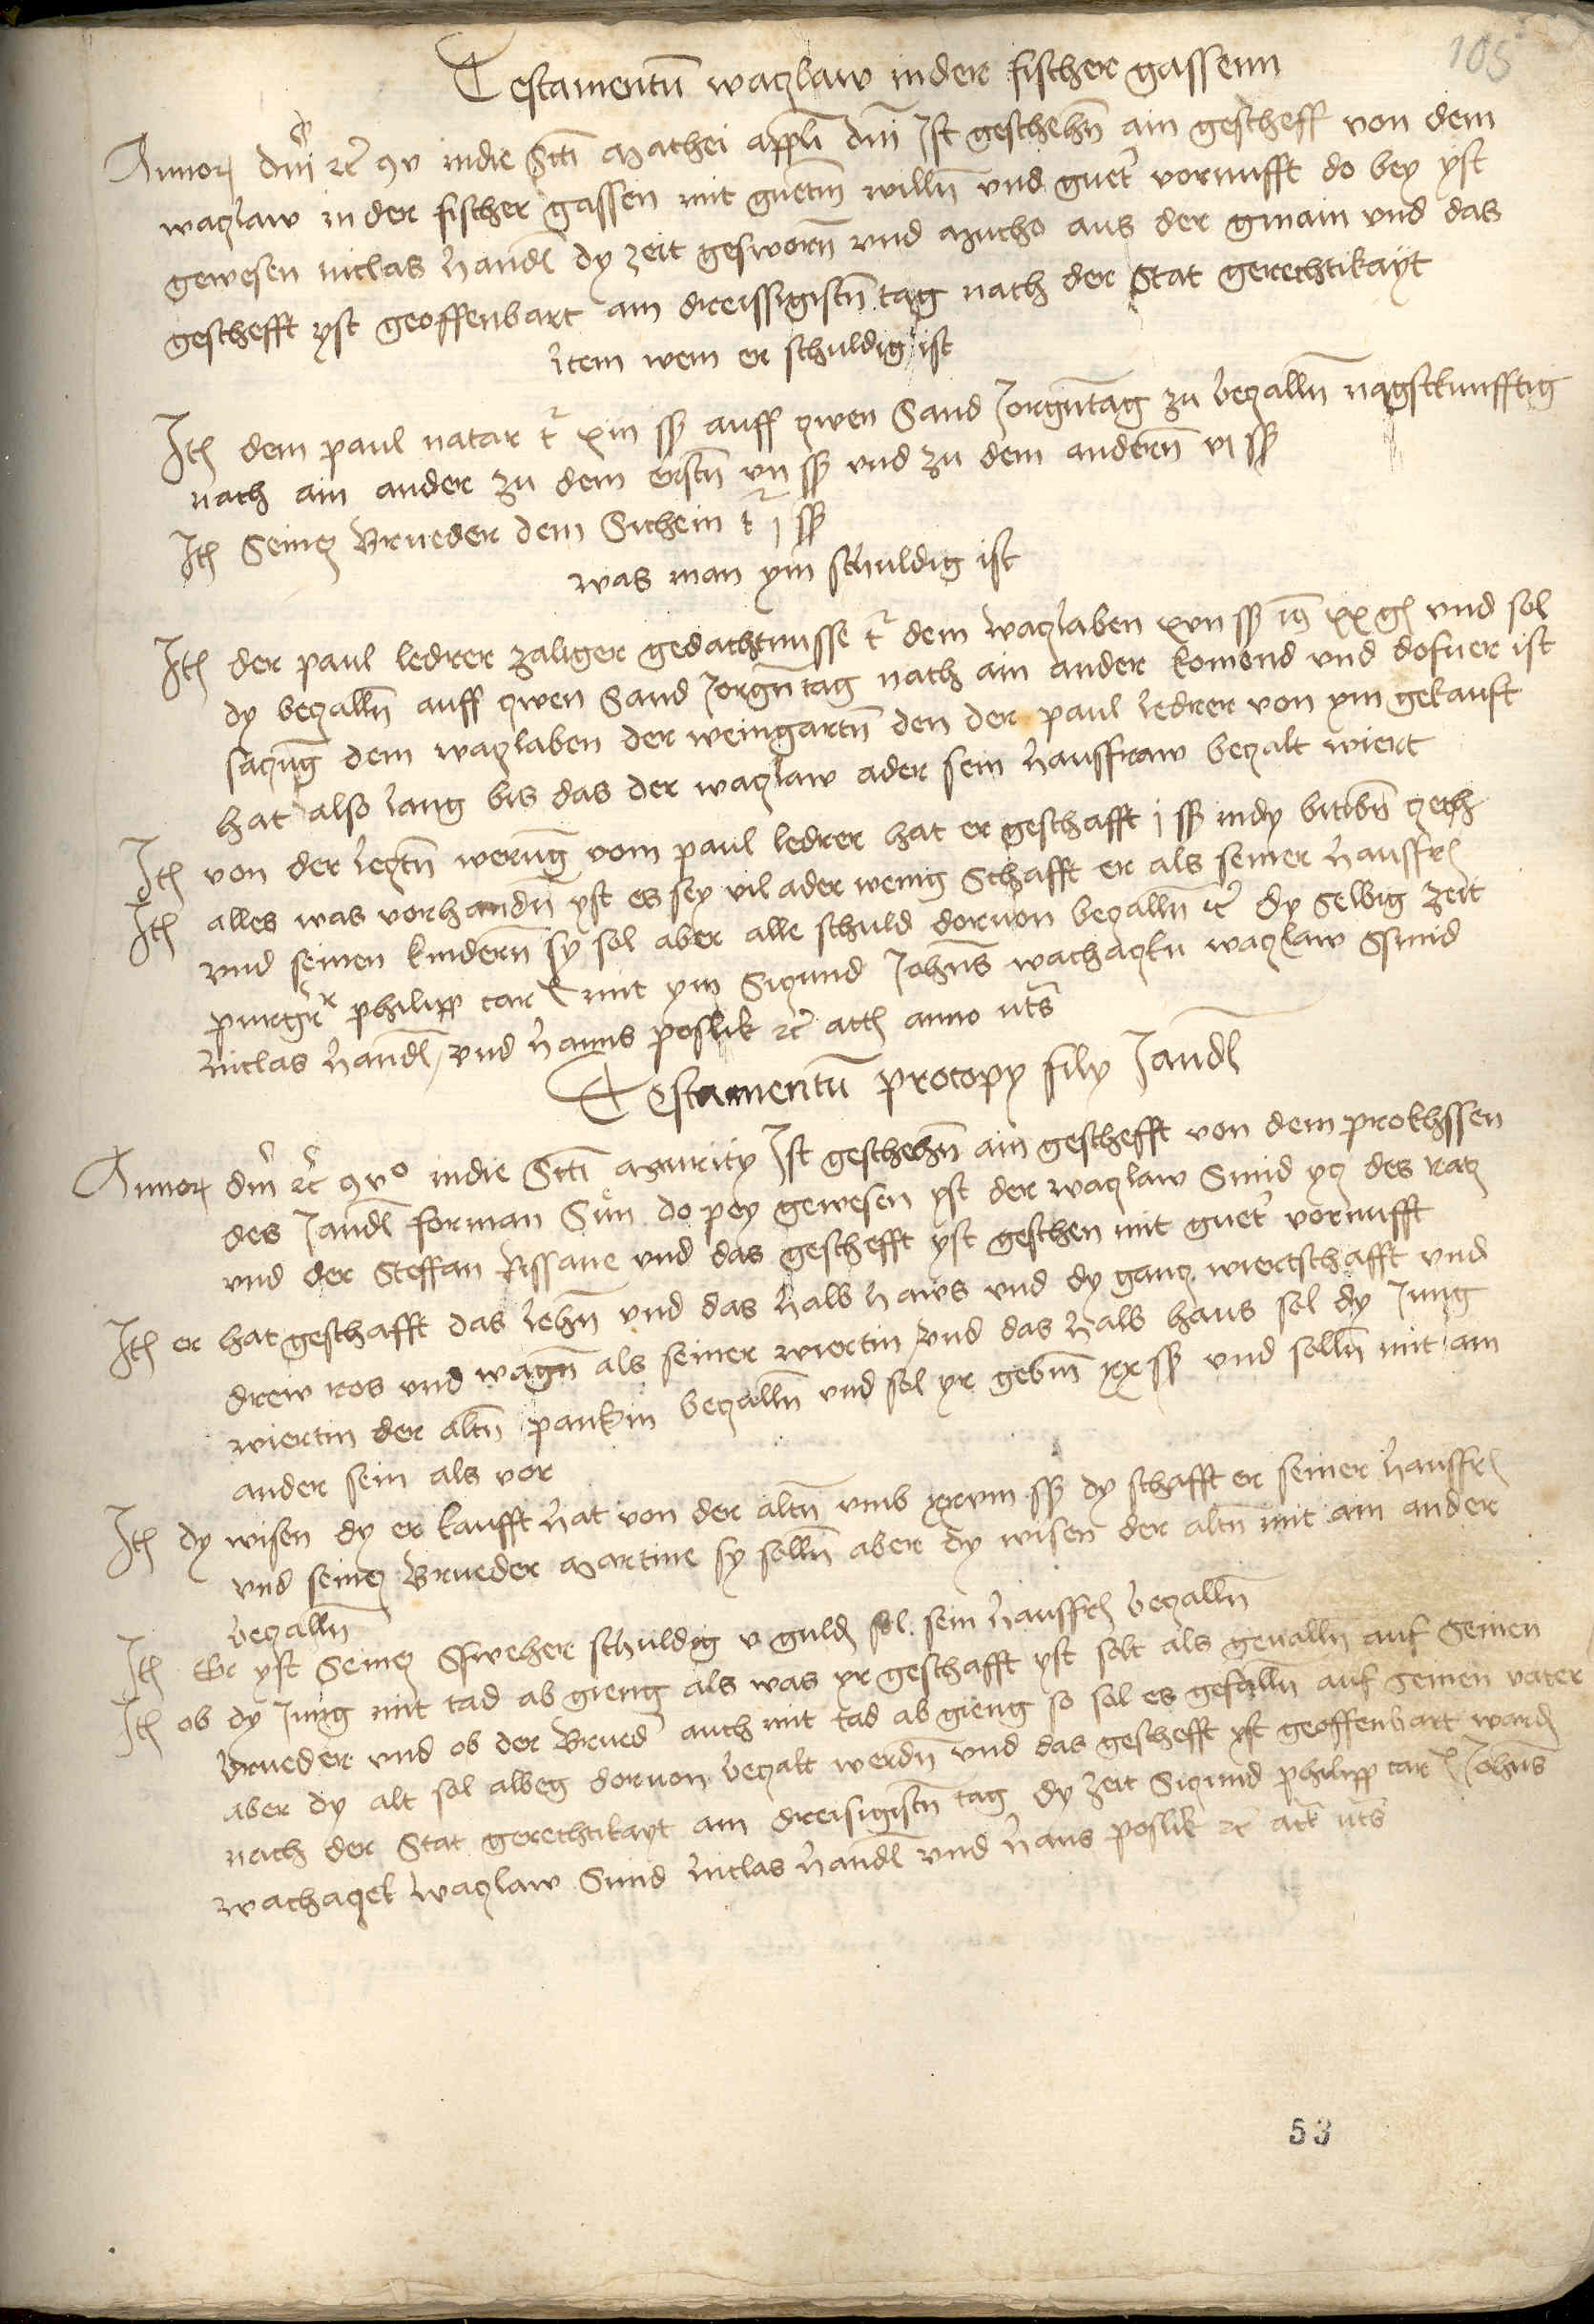 105
Testamentum waczlaw in der fischer gassenn
Annor dm̄ rc̄ xv in die Sctī Mathei appłi dm̄ Ist geschehn̄ ain gescheff von dem
waczlaw in der fischer gassen mit guetm̄ willn̄ vnd guet̄ vornufft do bey yst
gewesen niclas handl dy zeit gesworn̄ vnd Mucho aus der gmain vnd das
geschefft yst geoffenbart am dreissigistn̄ tag nach der Stat gerechtikayt
Item wem er schuldig ist
Itē dem paul natar t̄ xiii ss auff czwen Sand Jorgn̄tag zu beczalln̄ nagstkunfftig
nach ain ander zu dem erstn̄ vii ss vnd zu dem andern̄ vi ss
Itē Seinē Brueder dem Sichein t̄ j ss
was man ym schuldig ist
Itē der paul ledrer zaliger gedachtnusse t̄ dem waczlaben xvii ss xx gr vnd sol
dy beczalln̄ auff czwen Sand Jorgn̄tag nach ain ander komend vnd dofuer ist
saczūg dem waczlaben der weingartn̄ den der paul ledrer von ym gekauft
hat also lang bis das der waczlaw ader sein hausfraw beczalt wiert
Itē von der lecztn̄ werūg vom paul ledrer hat er geschafft j ss in dy czech
Itē alles was vorhandn̄ yst es sey vil ader wenig Schafft er als seiner hausfr̄
vnd seinen kindern̄ sy sol aber alle schuld doruon beczalln̄ dy selbig zeit
purgr̄ philipp mit ym Sigmund John̄s waczlaw Smid
Niclas handl vnd hanns poslik rc̄ actū anno uts̄
Testamentū procopy fily Jandl
Annor dm̄ rc̄ xvo in die Sctī Maurity Ist geschehn̄ ain geschefft von dem prokhssen
des Jandl forman Sun do pey gewesen yst der waczlaw Smid des Racz
vnd der Steffan Rissane vnd das geschefft yst geschen mit guet̄ vornufft
Itē er hat geschafft das lehn̄ vnd das halb haws vnd dy gancz wiertschafft vnd
drew ros vnd wagn̄ als seiner wiertin vnd das halb haus sol dy Jung
wiertin der altn̄ pankin beczalln̄ vnd sol yr gebm̄ xx ss vnd solln̄ mit ain
ander sein als vor
Itē dy wisen dy er kaufft hat von der altn̄ vmb xxviii ss dy schafft er seiner hausfr̄
vnd seinē Brueder Martine sy solln̄ aber dy wisen der altn̄ mit ain ander
beczalln̄
Itē Er yst Seinē Sweher schuldig v guld̄ sol sein hausfr̄ beczalln̄
Itē ob dy Jung mit tad ab gieng als was yr geschafft yst solt als geualln̄ auf Seinen
Brueder vnd ob der Brued̄ auch mit tad ab gieng so sol es gefalln̄ auf Seinen vater
aber dy alt sol albeg doruon beczalt werdn̄ vnd das geschefft yst geoffenbart ward̄
nach der Stat gerechtikayt am dreisigistn̄ tag dy zeit Sigmund philipp John̄s
waczlaw Smid Niclas handl vnd hans poslik rc̄ actū uts̄
53